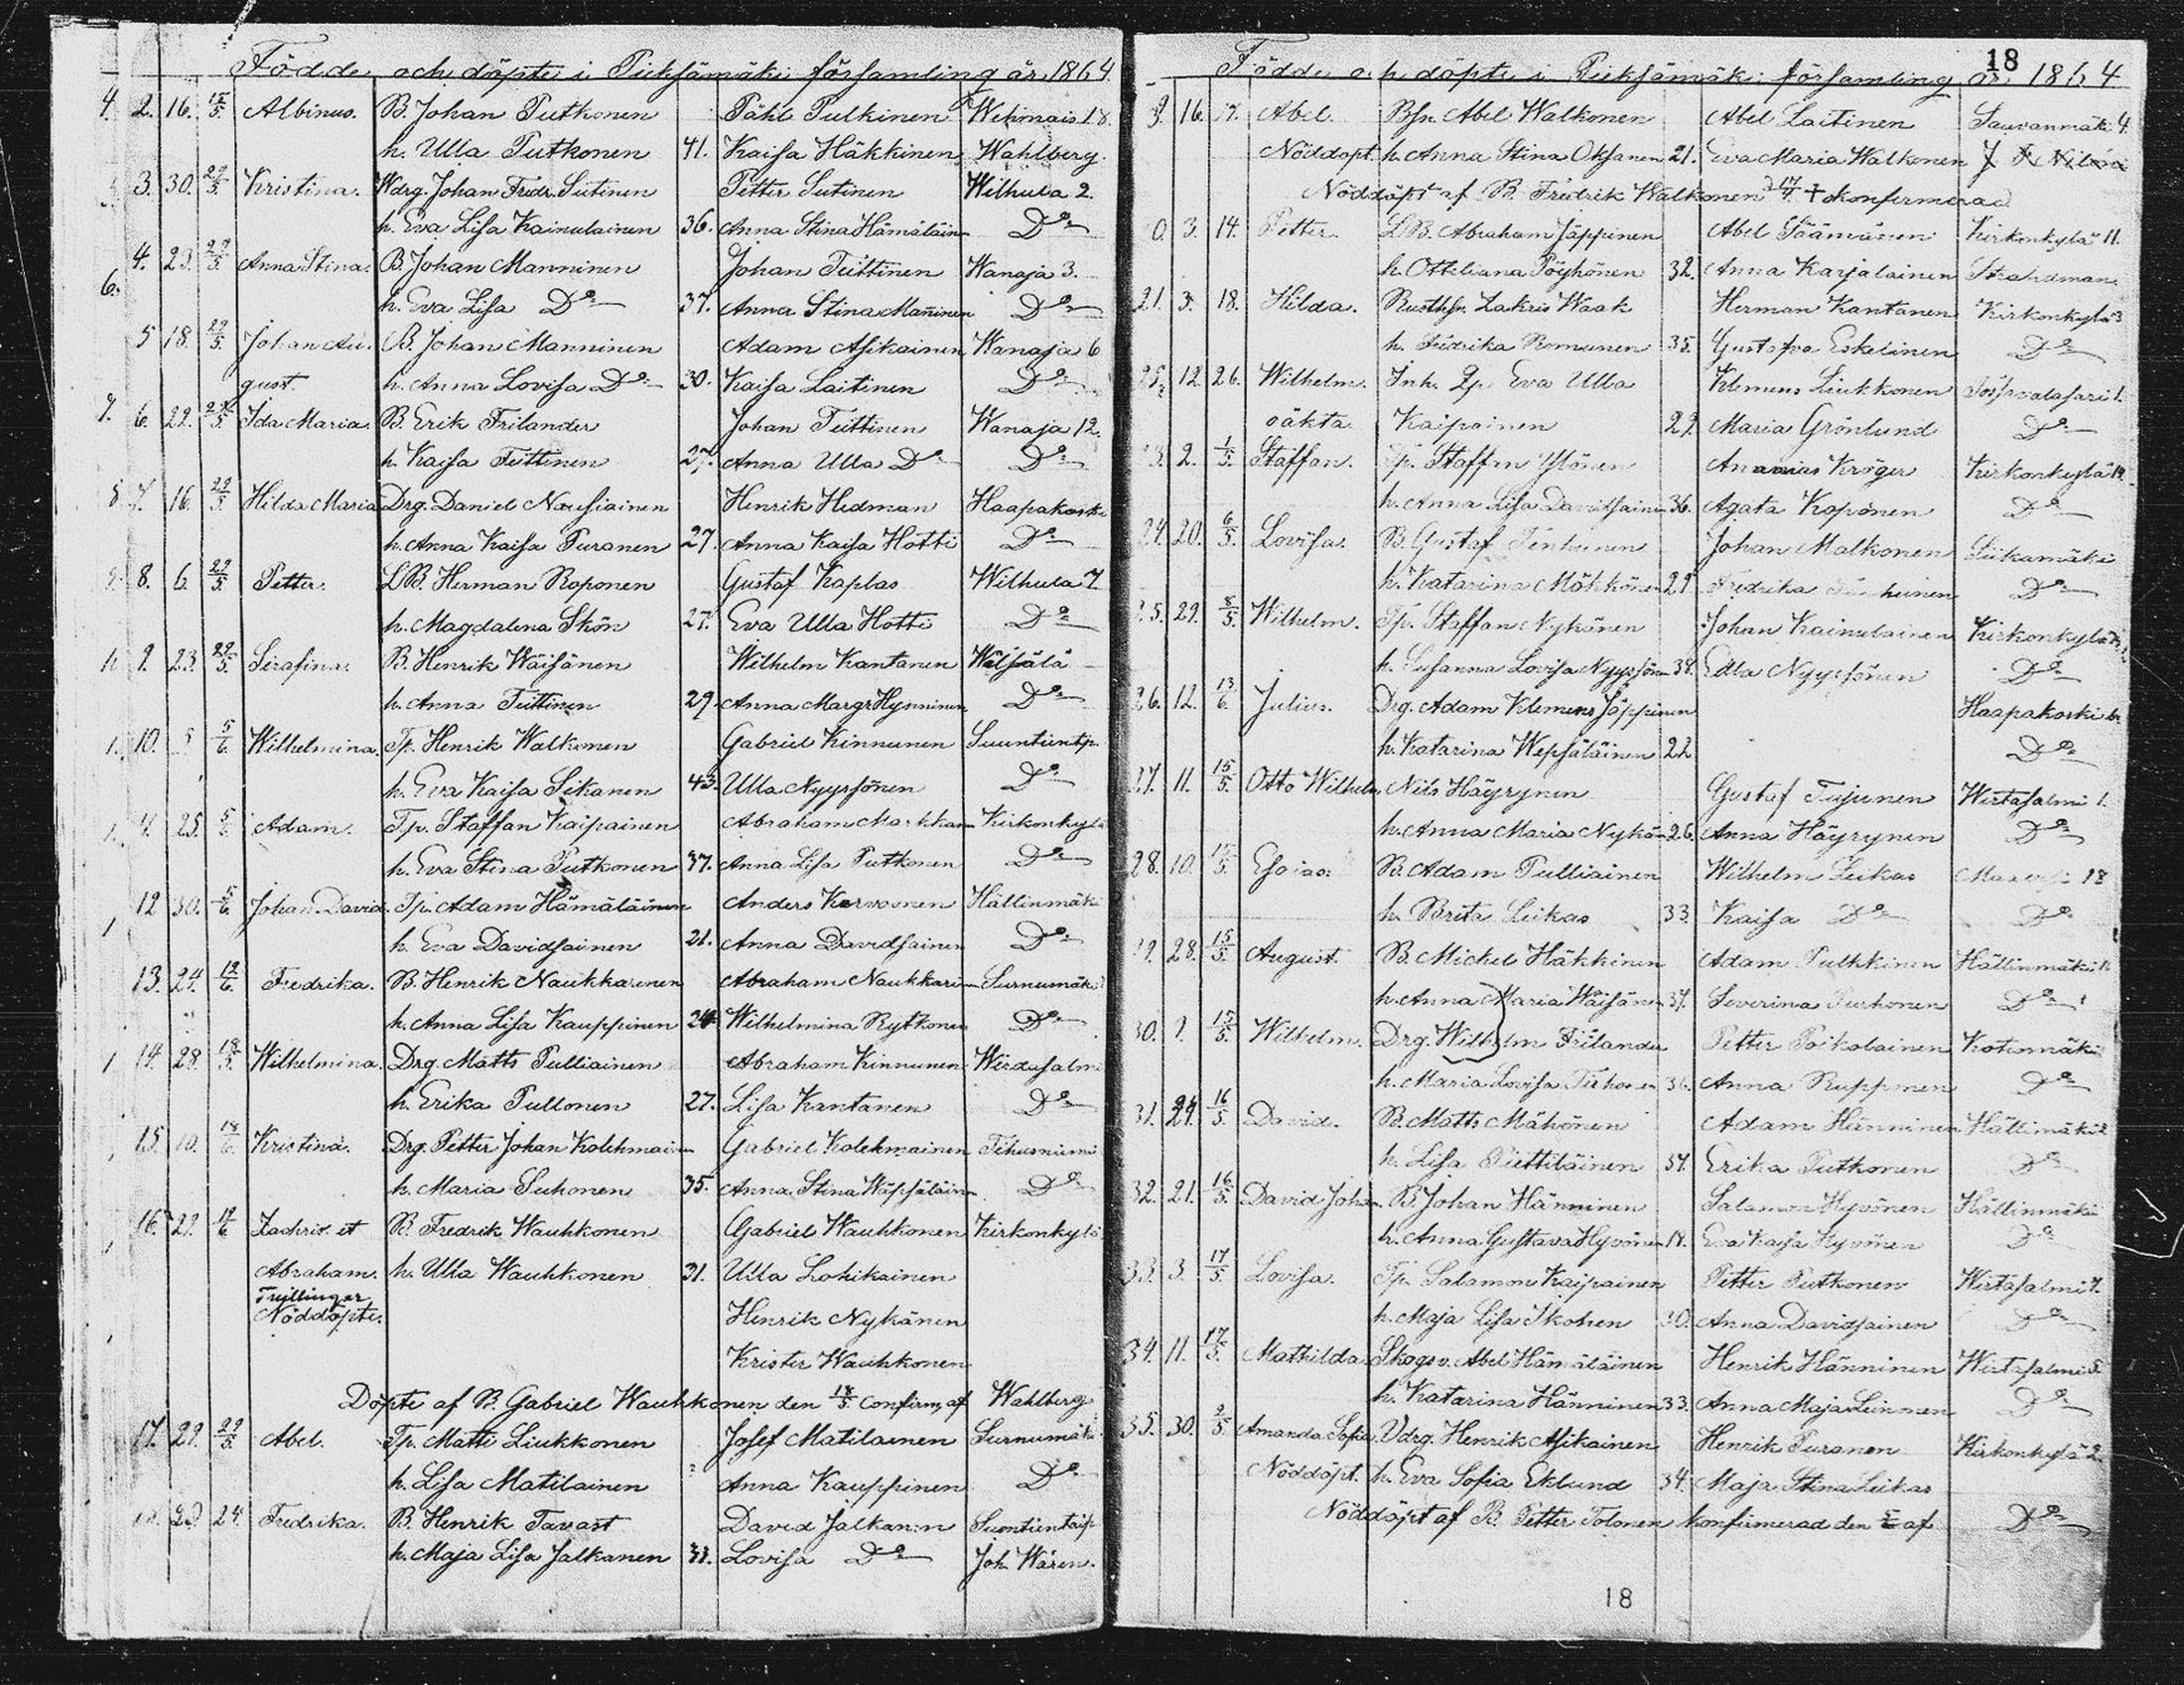 Födde och döpte i Pieksämäki församling år 1864.
4. 2. 16. 15/5. Albinus. B. Johan Putkonen Påhl Pulkinen Wehmais 18.
h. Ulla Putkonen 41. Kaisa Häkkinen Wahlberg.
3. 30. 29/5. Kristina. Wdrg. Johan Fredr. Siitinen Petter Siitinen Wilhula 2.
h. Eva Lisa Kainulainen 36. Anna Stina Hämäläin Do
4. 23. 29/5. Anna Stina. B. Johan Manninen Johan Teittinen Wanaja 3.
6. h. Eva Lisa Do 37. Anna Stina Mañinen Do
5 18. 29/5. Johan Au- B. Johan Manninen Adam Asikainen Wanaja 6
gust. h. Anna Lovisa Do 30. Kaisa Laitinen Do
7. 6. 22. 29/5. Ida Maria. B. Erik Frilander Johan Teittinen Wanaja 12.
h. Kaisa Teittinen 27. Anna Ulla Do Do
8. 7. 16. 29/5. Hilda Maria Drg. Daniel Nousiainen Henrik Hedman Haapakoski
h. Anna Kaisa Puranen 27. Anna Kaisa Hotti Do
8. 6 29/5. Petter. LB. Herman Roponen Gustaf Kaplas Wilhula 7.
h. Magdalena Skön 27. Eva Ulla Hotti Do
9. 23. 29/5. Serafina. B. Henrik Wäisänen Wilhelm Kantanen
h. Anna Teittinen 29. Anna Margr Hynninen Do
10. 5 5/6. Wilhelmina. Tp. Henrik Walkonen Gabriel Kinnunen Suuntientp.
h. Eva Kaisa Sikanen 43. Ulla Nyyssönen Do
25. 5/6 Adam. Tp. Staffan Kaipainen Abraham Markkan Kirkonkylä
h. Eva Stina Putkonen 37. Anna Lisa Putkonen Do
12 30. 5/6. Johan David. Tp. Adam Hämäläinen Anders Karvonen Hällinmäki
h. Eva Davidsainen 21. Anna Davidsainen Do
13. 24. 12/6. Fredrika. B. Henrik Naukkarinen Abraham Naukkarin Surnumäki
h. Anna Lisa Kauppinen 24 Wilhelmina Rytkonen Do
14. 28. 18/5. Wilhelmina. Drg. Matts Pulliainen Abraham Kinnunen Wirdasalmi
h. Erika Pullonen 27. Lisa Kantanen Do
15. 10. 18/6. Kristina. Drg. Petter Johan Kolehmain Gabriel Kolehmainen Tihusniemi
h. Maria Suhonen 35. Anna Stina Wäpsäläin Do
16. 29. 19/6 Zachris et B. Fredrik Wauhkonen Gabriel Wauhkonen Kirkonkylä
Abraham. h. Ulla Wauhkonen 31. Ulla Lohikainen
Tvillingar
Nöddöpte. Henrik Nykänen
Krister Wauhkonen
Döpte af B. Gabriel Wauhkonen den 18/5 confirm, af Wahlberg
17. 29. 29/5. Abel. Tp. Matti Liukkonen Josef Matilainen Surnumäki
h. Lisa Matilainen Anna Kauppinen Do
18. 20 24. Fredrika. B. Henrik Tavast David Jalkanen Suontientaip
h. Maja Lisa Jalkanen 33. Lovisa Do Joh. Wåren.
18
Födde och döpte i Pieksämäki församling år 1864
16. Abel. Bsn. Abel Walkonen Abel Laitinen Sauvanmäki 4.
Nöddöpt. h. Anna Stina Oksanen 21. Eva Maria Walkonen
Nöddöpt af B. Fredrik Walkonen 17/4 + konfirmerad
3. 14. Petter LB. Abraham Jäppinen Abel Säämänen Kirkonkylä 11.
h. Ottiliana Pöyhönen 32. Anna Karjalainen Strahdman
21. 3. 18. Hilda. Rusthfn. Zakris Waak Herman Kantanen Kirkonkylä 3
h. Fredrika Romunen 35. Gustafva Eskelinen Do
12. 26. Wilhelm. Inh. Qp. Eva Ulla Klemens Liukkonen
oäkta. Kaipainen 29. Maria Grönlund Do
2. 1/5. Staffan. Tp. Staffan Ylönen Ananias Kröger Kirkonkylä 19.
h. Anna Lisa Davidsainen 36. Agata Kopönen Do
24. 20. 6/5. Lovisa. B. Gustaf Tenhunen Johan Malkonen Siikamäki
h. Katarina Möhkönen 29 Fredrika Do
25. 29. 8/5. Wilhelm. Tp. Staffan Nykänen Johan Kainulainen Kirkonkylä
h. Susanna Lovisa Nyyssönen 38. Edla Nyyssönen Do
26. 12. 13/6. Julius. Drg. Adam Klemens Jäppinen Haapakoski br.
h. Katarina Wepsäläinen 22 Do
27. 11. 15/5. Otto Wilhelm Nils Häyrynen Gustaf Tujunen Wirtasalmi 1.
h. Anna Maria Nykän 26. Anna Häyrynen Do
28. 10. 15/5. Esaias. B. Adam Pulliainen Wilhelm Leikas 18
h. Brita Leikas 33. Kaisa Do Do
28. 15/5. August. B. Michel Häkkinen Adam Pulkkinen Hällinmäki
h. Anna Maria Wäisänen 37. Severina Turhonen Do
30. 15/5. Wilhelm. Drg. Wilhelm Frilander Petter Poikolainen Kotumäki
h. Maria Lovisa Tirhonen Anna Rupponen Do
31. 24. 16/5. David. B. Matts Mähönen Adam Hänninen Hällimäki
h. Lisa Piettiläinen 37. Erika Putkonen Do
32. 21. 16/5. David Johan. B. Johan Hänninen Salamon Hyvönen Hällinmäki
h. Anna Gustava Hyvönen 19. Eva Kaisa Hyvönen Do
33. 3. 17/5. Lovisa. Tp. Salamon Kaipainen Petter Putkonen Wirtasalmi 7.
h. Maja Lisa Ikohen Anna Davidsainen Do
34. 11. 17/5. Mathilda Skogsv. Abel Hämäläinen Henrik Hänninen Wirtasalmi 5
h. Katarina Hänninen 33. Anna Maja Leinonen Do
35. 30. 2/5. Amanda Sofia. Vdrg. Henrik Asikainen Henrik Puranen Kirkonkylä 2.
Nöddöpt. h. Eva Sofia Eklund 34. Maja Stina Leikas
Nöddöpt af B. Petter Tolonen konfirmerad den af Do
18